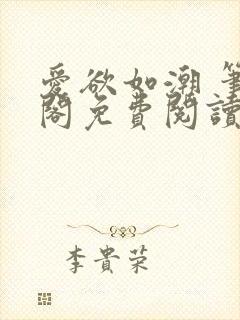 愛欲如潮 筆
閣免費閱讀
李貴榮